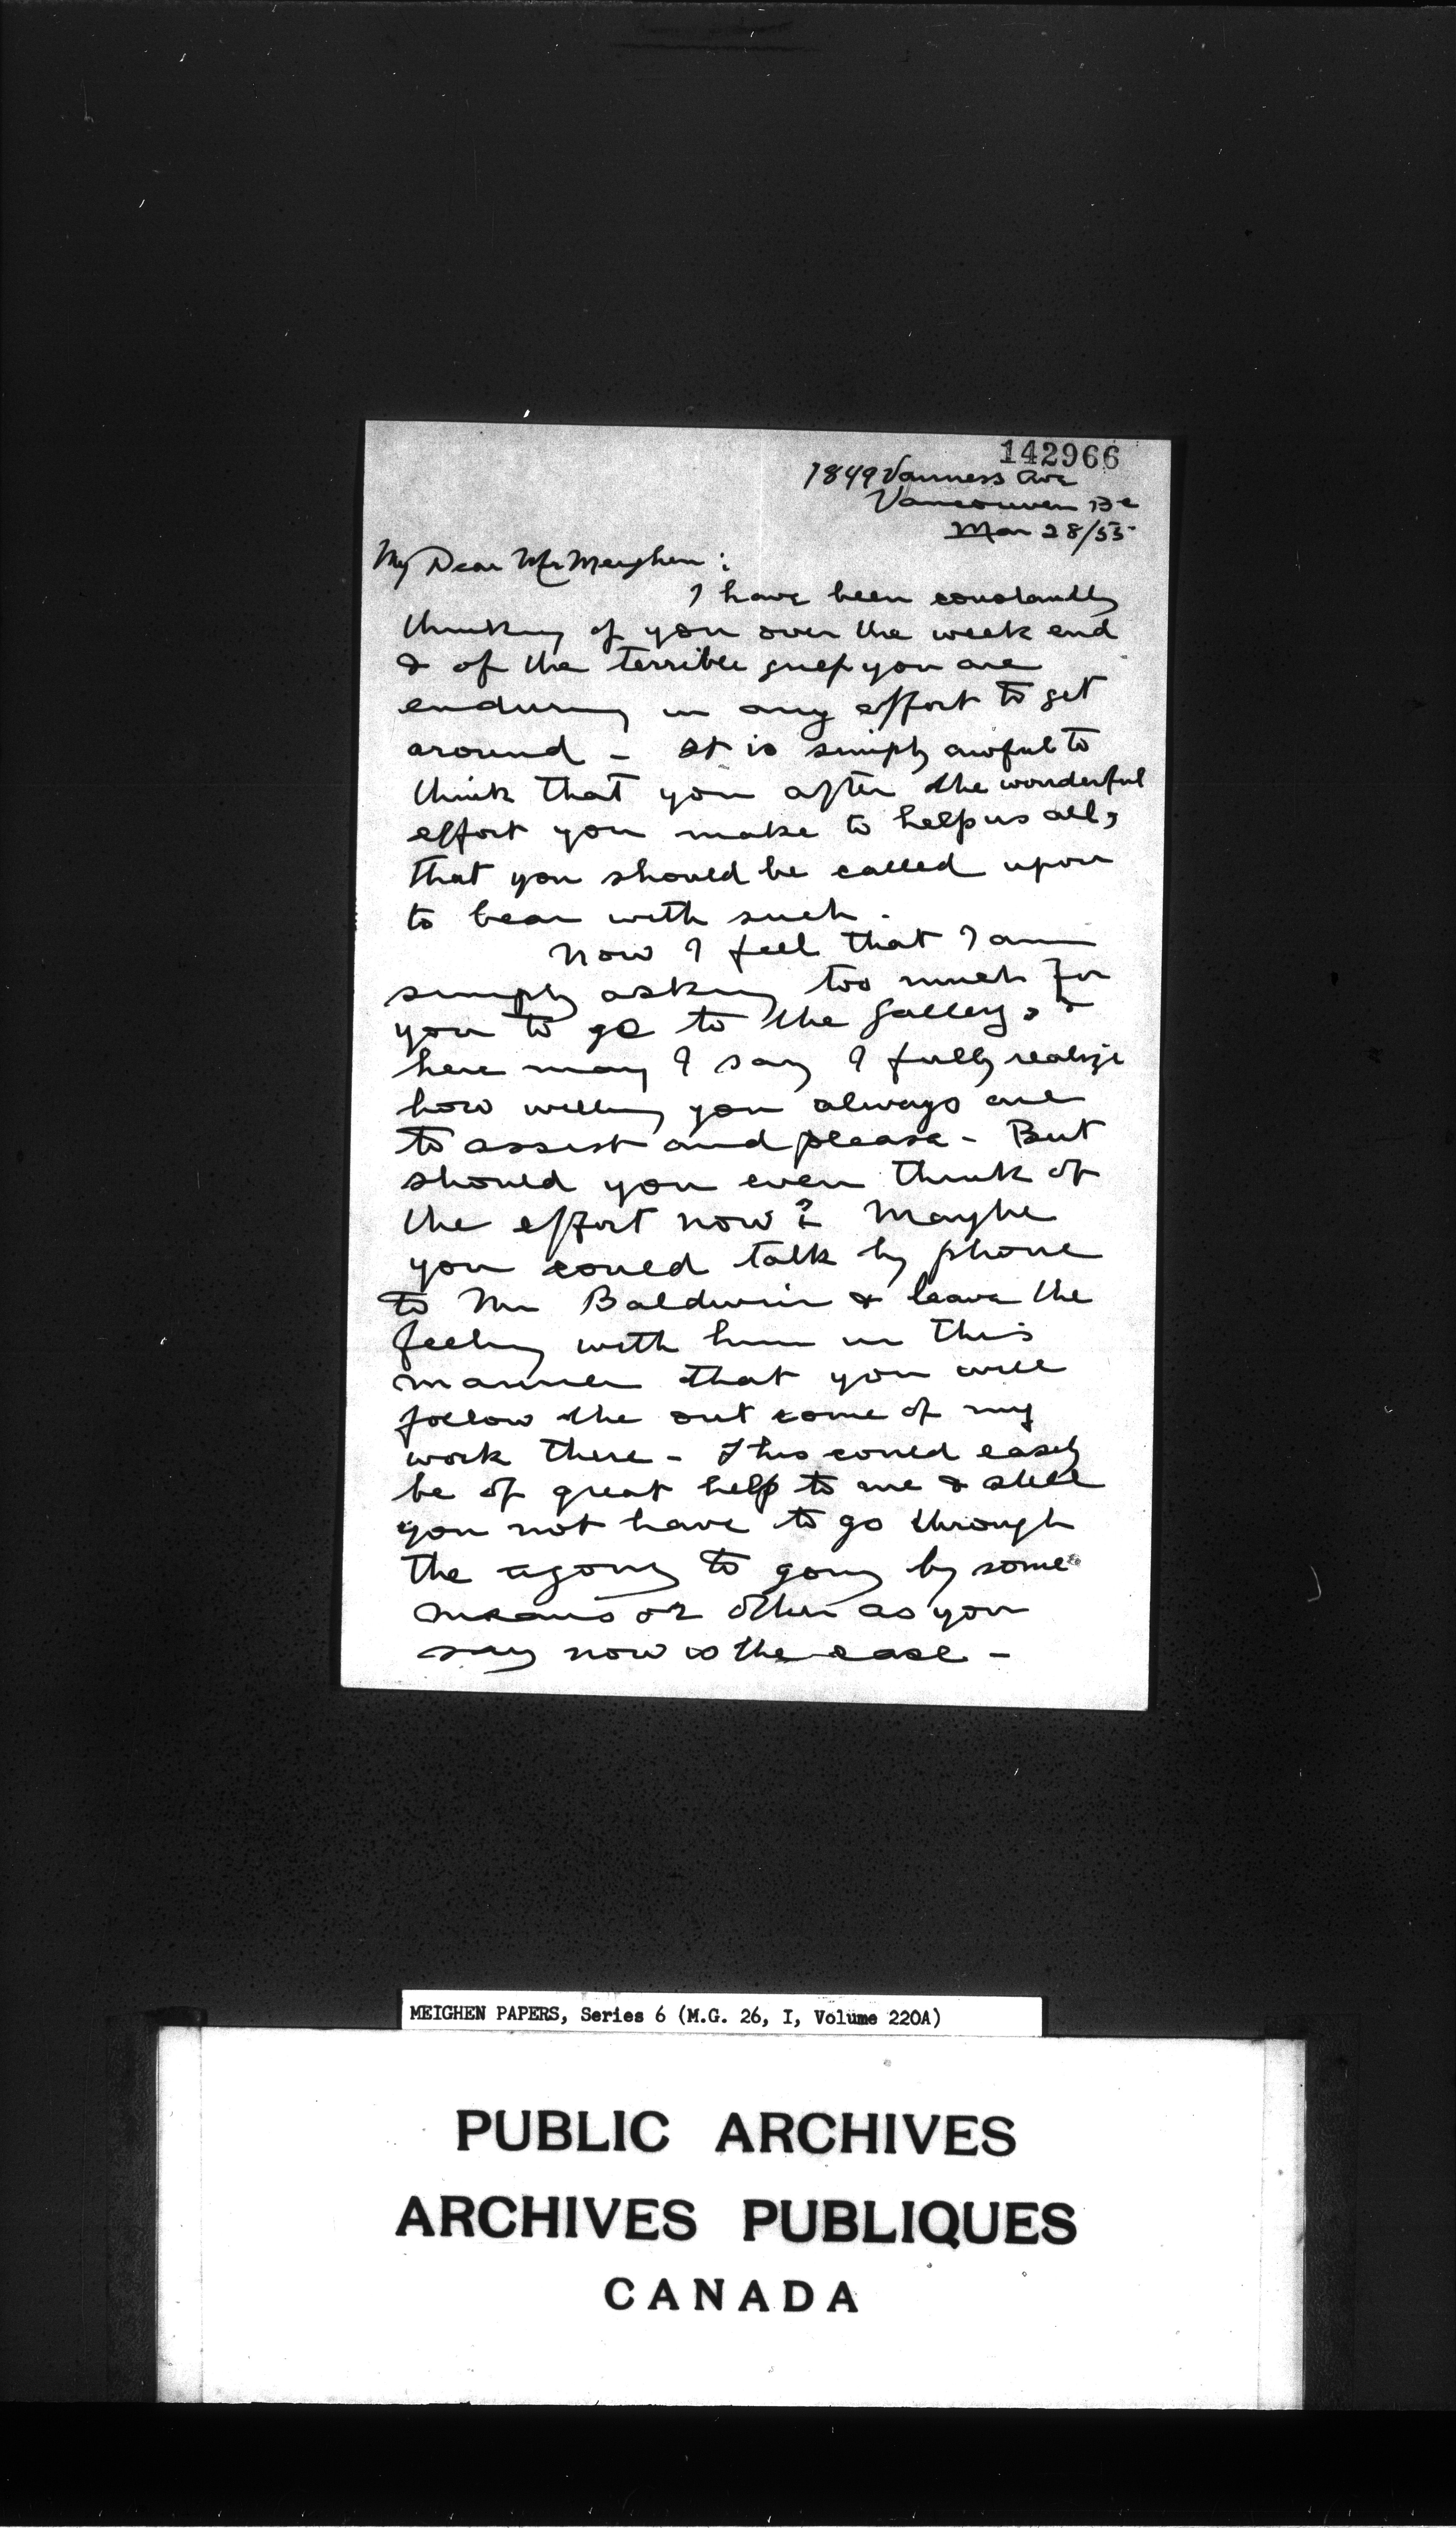 142966
1849 Vanness Ave
Vancouver BC
Mar 28/55
My Dear Mr Meighen :
I have been constantly
thinking of you over the week end
& of the terrible grief you are
enduring in any effort to get
around - It is simply awful to
think that you after the wonderful
effort you make to help us all,
that you should be called upon
to bear with such.
Now I feel that I am
simply asking too much for
you to go to the Gallery, &
here may I say I fully realize
how willing you always are
to assist and please - But
should you even think of
the effort now? Maybe
you could talk by phone
to Mr Baldwin & leave the
feeling with him in this
manner that you will
follow the out come of my
work there - This could easily
be of great help to me & still
you not have to go through
the agony to going by some
means or other as you
say now is the case -
MEIGHEN PAPERS, Series 6 (M.G. 26, I, Volume 220A)
PUBLIC ARCHIVES
ARCHIVES PUBLIQUES
CANADA